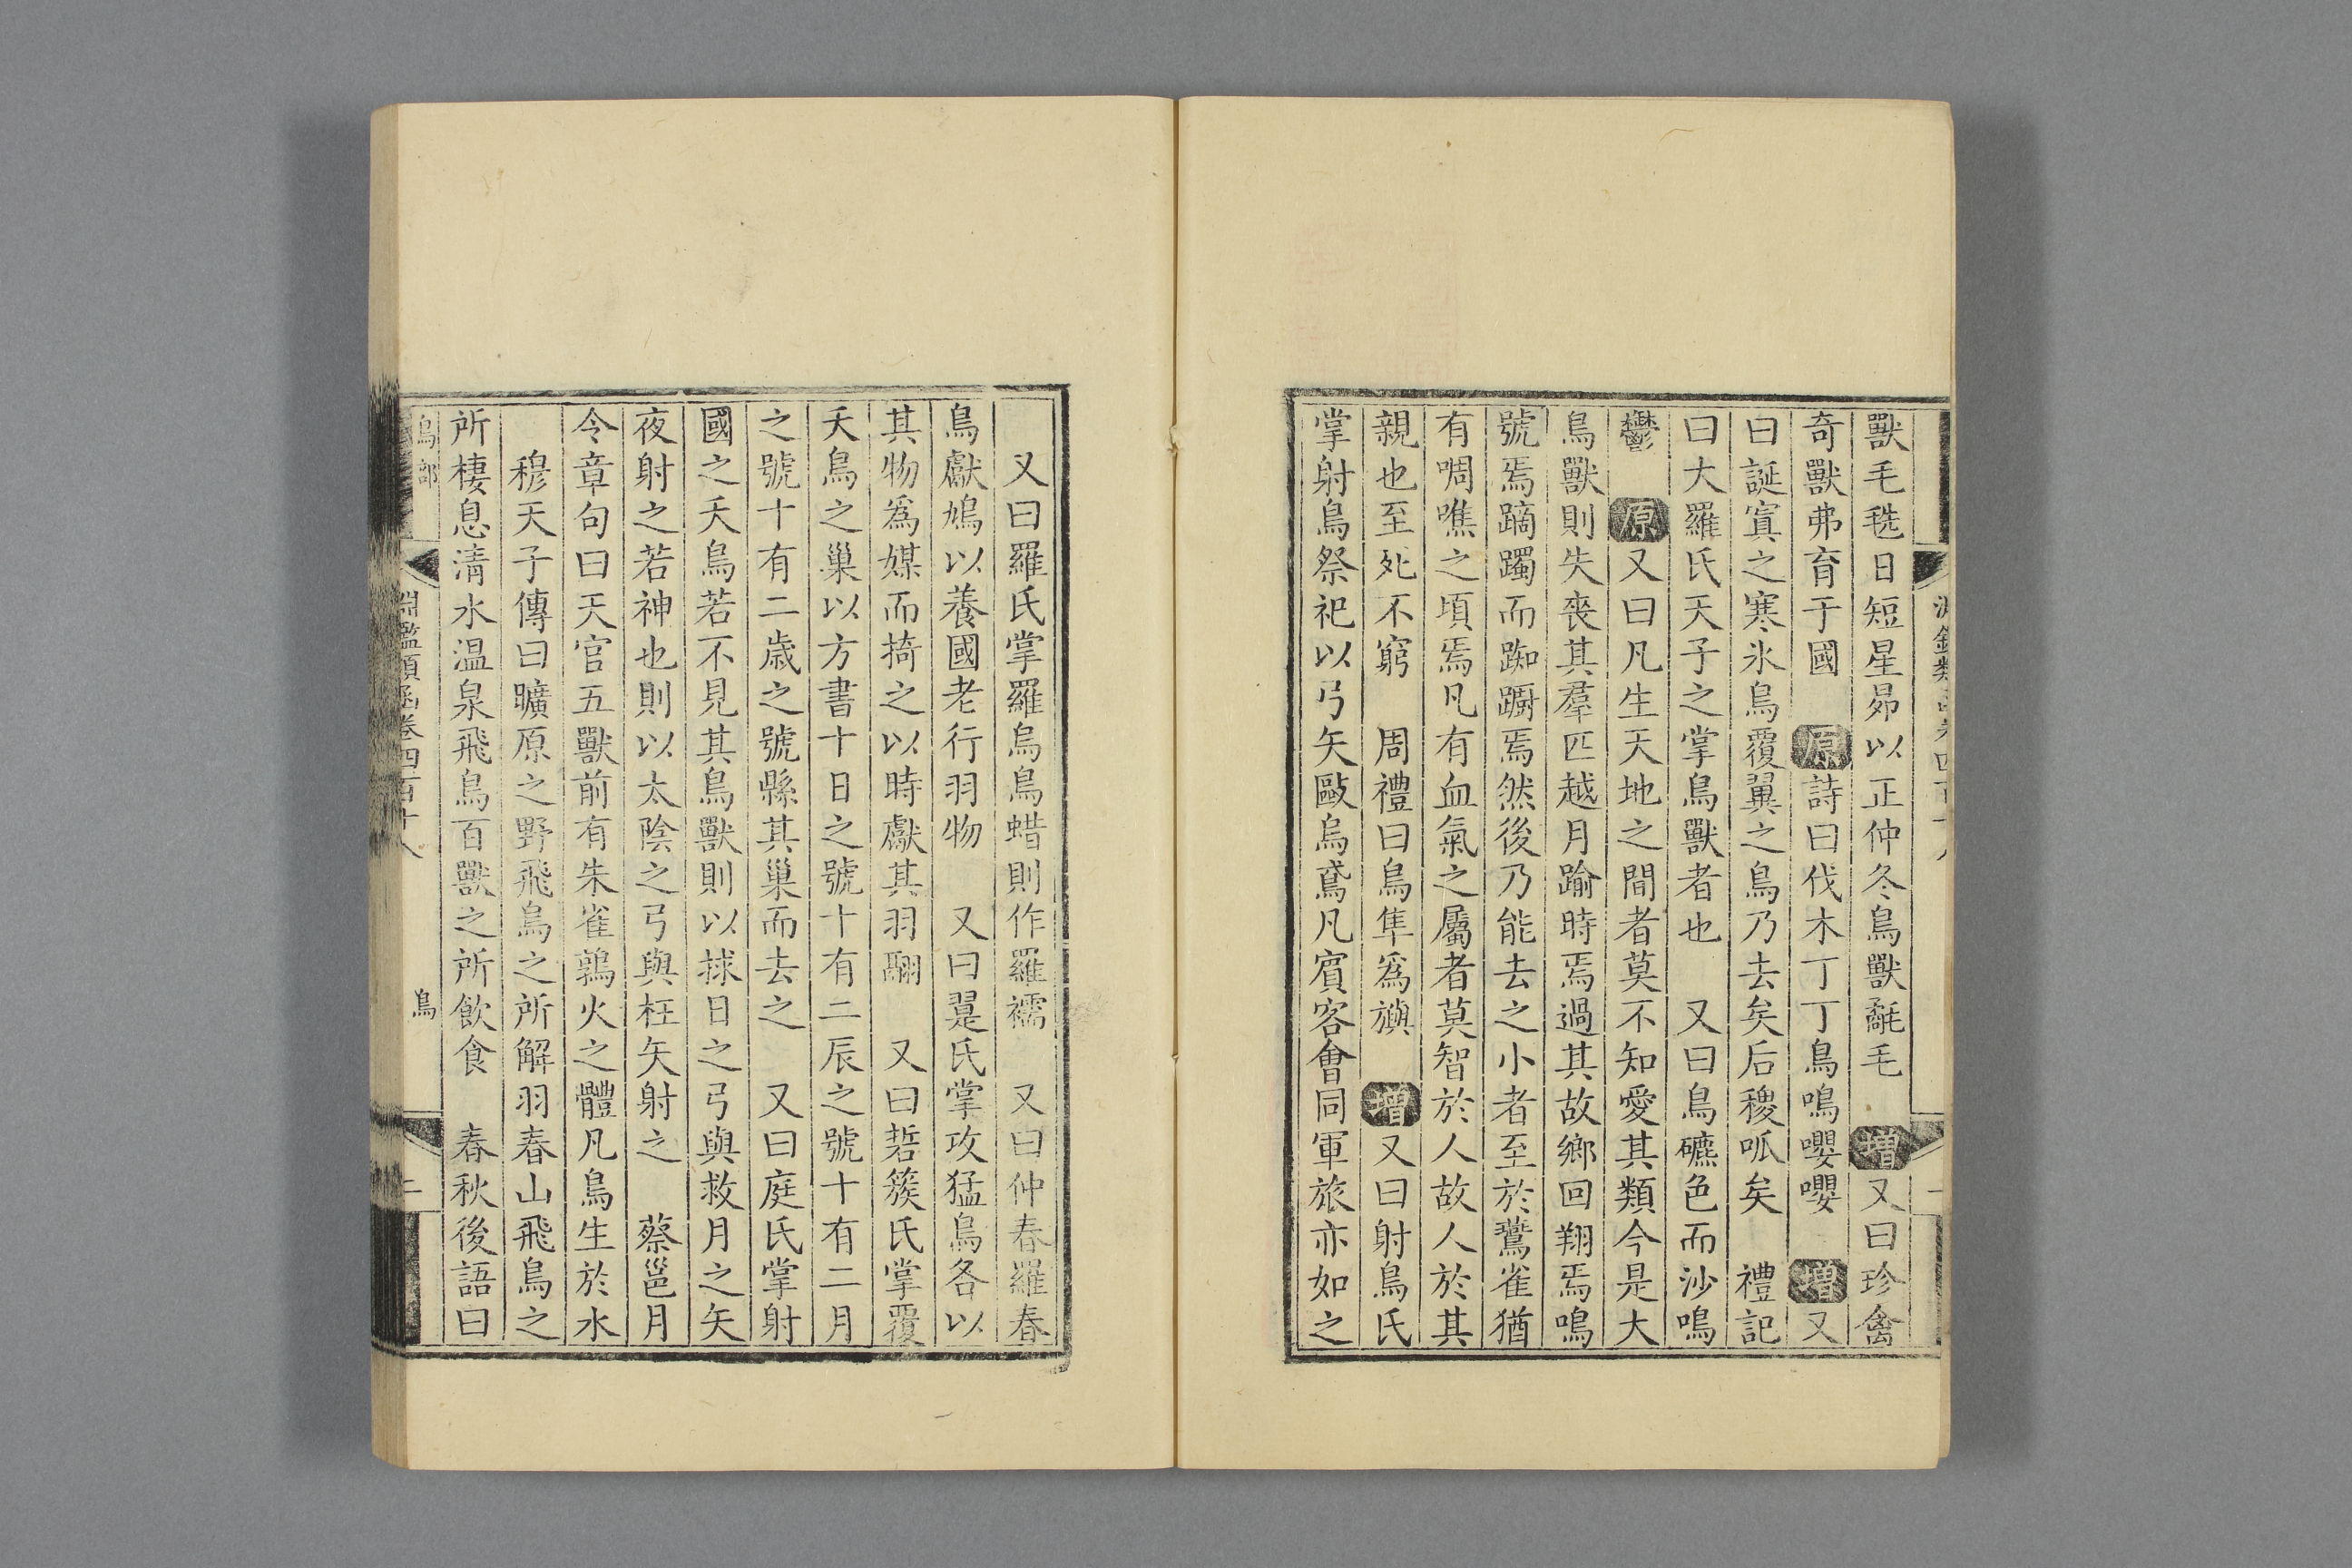 獸毛毨日短星昴以正仲冬鳥獸氄毛　增又曰珍禽
奇獸弗育于國　原詩曰伐木丁丁鳥鳴嚶嚶　增又
曰誕寘之寒氷鳥覆翼之鳥乃去矣后稷呱矣　禮記
曰大羅氏天子之掌鳥獸者也　又曰鳥皫色而沙鳴
鬱　原又曰凡生天地之間者莫不知愛其類今是大
鳥獸則失喪其羣匹越月踰時焉過其故鄉回翔焉鳴
號焉蹢躅而踟蹰焉然後乃能去之小者至於鷰雀猶
有啁噍之頃焉凡有血氣之屬者莫智於人故人於其
親也至死不窮　周禮曰鳥隼爲旟　增又曰射鳥氏
掌射鳥祭祀以弓矢毆烏鳶凡賓客會同軍旅亦如之
又曰羅氏掌羅烏鳥蜡則作羅襦　又曰仲春羅春
鳥獻鳩以養國老行羽物　又曰翨氏掌攻猛鳥各以
其物爲媒而掎之以時獻其羽翮　又曰硩簇氏掌覆
夭鳥之巢以方書十日之號十有二辰之號十有二月
之號十有二歲之號縣其巢而去之　又曰庭氏掌射
國之夭鳥若不見其鳥獸則以捄日之弓與救月之矢
夜射之若神也則以太陰之弓與枉矢射之　蔡邕月
令章句曰天官五獸前有朱雀鶉火之體凡鳥生於水
穆天子傳曰曠原之野飛鳥之所解羽舂山飛鳥之
所棲息淸水温泉飛鳥百獸之所飲食　春秋後語曰
鳥部　淵鑑類函卷四百十八　鳥　二